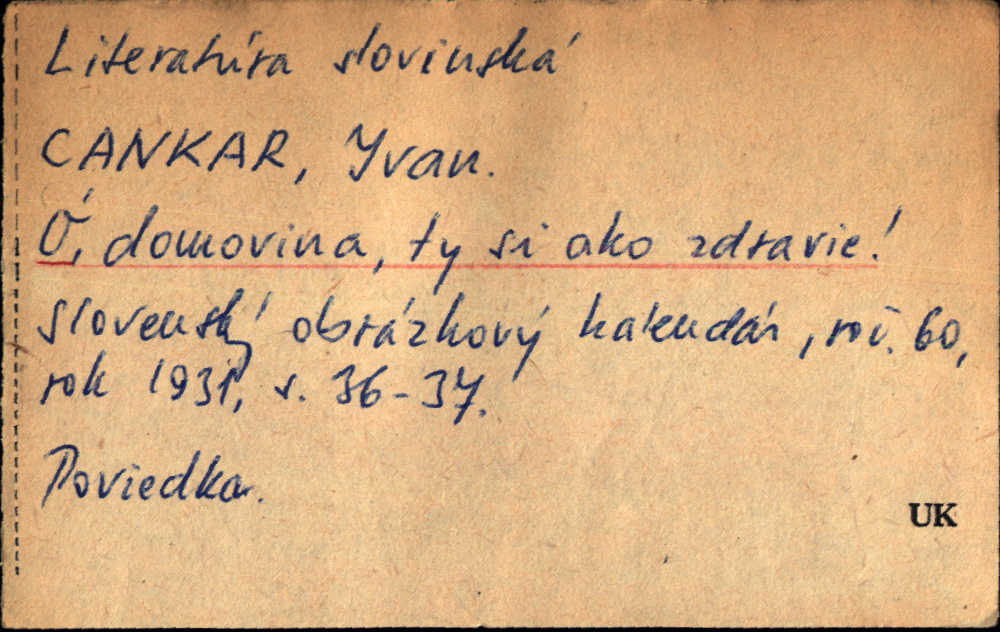 Literatúra slovinská
CANKAR, Yvan.
Ó, domovina, ty si ako zdravie!
Slovenský obrázkový kalendár, roč. 60,
rok 1931, s. 36-37.
Poviedka.
UK